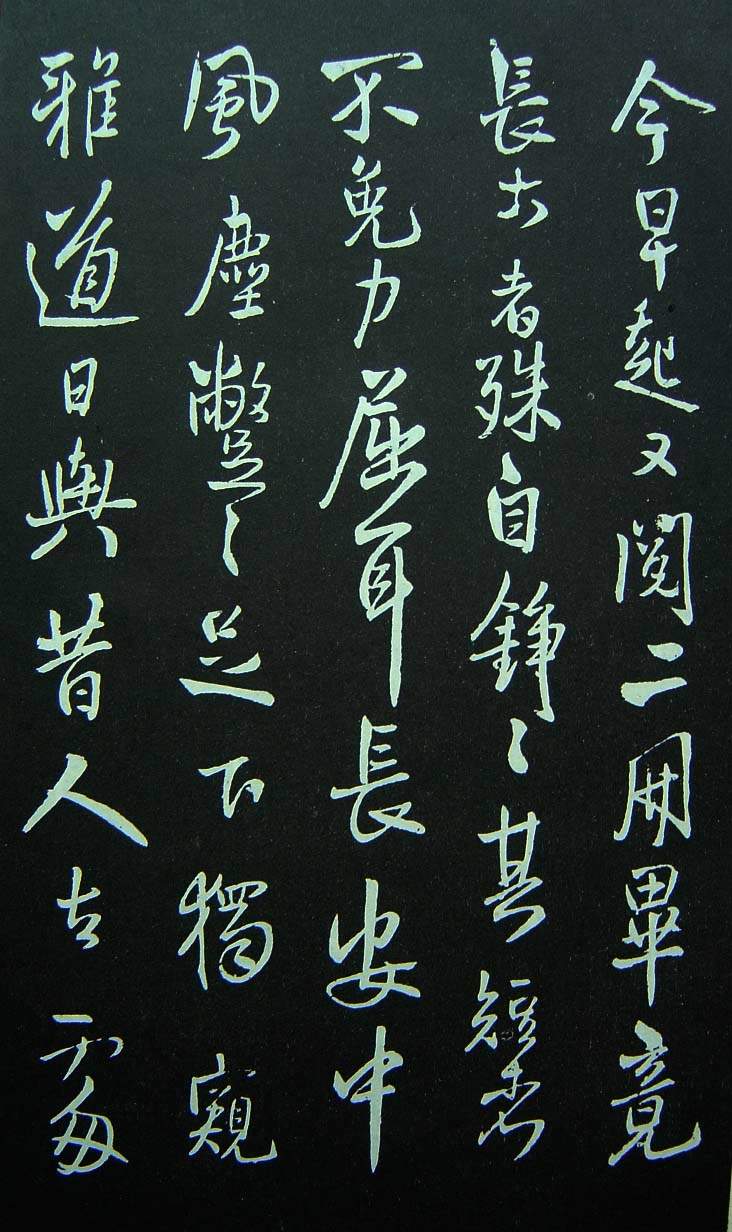 今早起又閱二冊畢竟
長古者殊自錚〻其短
不免力屈耳長安中
風塵蹩〻足下獨窺
雅道日與昔人古